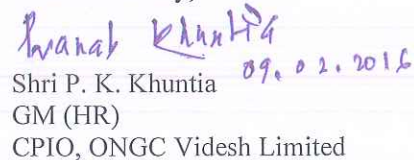 Pranab Khuntia
09.02.2016
Shri P. K. Khuntia
GM (HR)
CPIO, ONGC Videsh Limited